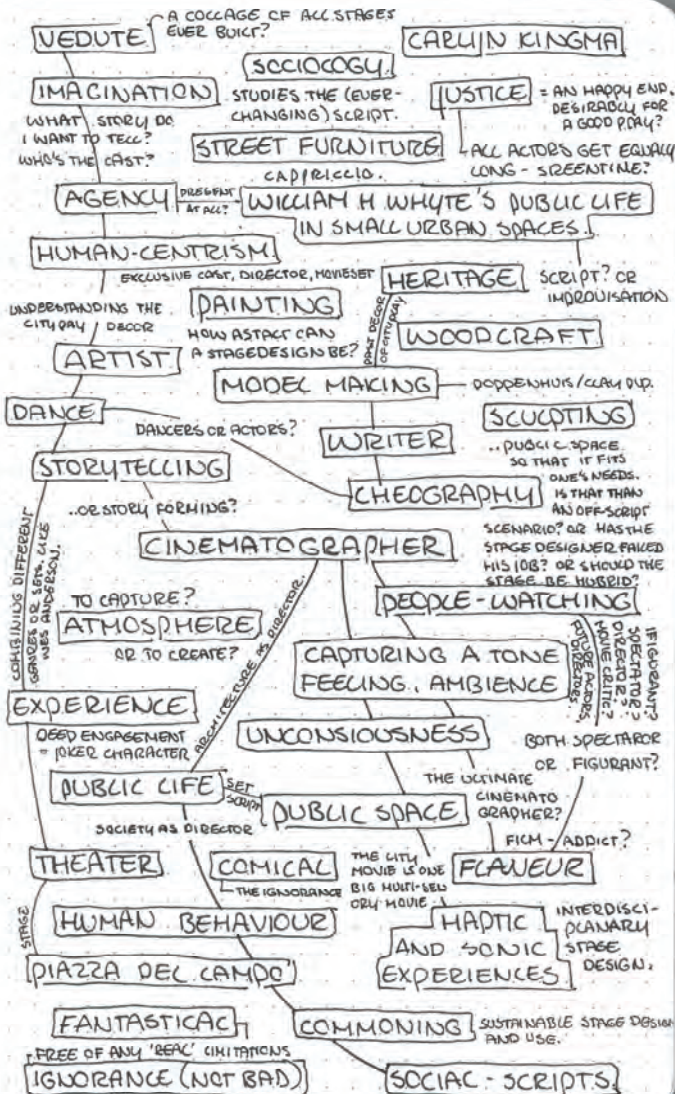 A COLLAGE OF ALL STAGES
EVER BUILT?
VEDUTE
CARLIJN KINGMA
SOCIOLOGY
STUDIES THE (EVER-
CHANGING) SCRIPT.
IMAGINATION
WHAT STORY DO
I WANT TO TELL?
WHO'S THE CAST?
JUSTICE
= AN HAPPY END.
DESIRABLY FOR
A GOOD PLAY?
ALL ACTORS GET EQUALLY
LONG - SREENTINE?
STREET FURNITURE
CAPIRICCIO.
AGENCY
PRESENT
AT ALL?
WILLIAM H WHYTE'S PUBLIC LIFE
IN SMALL URBAN SPACES.
HUMAN-CENTRISM
EXCLUSIVE CAST, DIRECTOR, MOVIESET
HERITAGE
SCRIPT? OR
IMPROVISATION
UNDERSTANDING THE
CITYPLAY DECOR
PAINTING
HOW ASTACT CAN
A STAGEDESIGN BE?
PAST DECOR
OF CITYPLAY
WOODCRAFT
ARTIST
MODEL MAKING
POPPENHUIS/CLAY DIP.
DANCE
DANCERS OR ACTORS?
WRITER
SCULPTING
..PUBLIC SPACE
SO THAT IT FITS
ONE'S NEEDS.
IS THAT THAN
AN OFF-SCRIPT
SCENARIO? OR HAS THE
STAGE DESIGNER FAILED
HIS JOB? OR SHOULD THE
STAGE BE HYBRID?
STORYTELLING
..OR STORY FORMING?
CHEOGRAPHY
CINEMATOGRAPHER
COMBINING DIFFERENT
GENRES OR SETS, LIKE
WES ANDERSON.
TO CAPTURE?
ATMOSPHERE
OR TO CREATE?
ARCHITECTURE AS DIRECTOR.
PEOPLE-WATCHING
CAPTURING A TONE
FEELING, AMBIENCE
IF FIGURANT?
SPECTATOR?
DIRECTOR?
MOVIE CRITIC?
FUTURE ACTORS,
DIRECTORS..
EXPERIENCE
DEEP ENGAGEMENT
= JOKER CHARACTER
UNCONSIOUSNESS
BOTH SPECTAROR
OR FIGURANT?
PUBLIC LIFE
SET
SCRIPT
PUBLIC SPACE
THE ULTIMATE
CINEMATO
GRAPHER?
SOCIETY AS DIRECTOR
FILM-ADDICT?
THEATER
COMICAL
THE IGNORANCE
THE CITY
MOVIE IS ONE
BIG MULTI-SEN
ORY MOVIE.
FLANEUR
STAGE
HUMAN BEHAVIOUR
HAPTIC
AND SONIC
EXPERIENCES
INTERDISCI-
PLANARY
STAGE
DESIGN.
PIAZZA DEL CAMPO'
FANTASTICAL
FREE OF ANY 'REAL' LIMITATIONS
COMMONING
SUSTAINABLE STAGE DESIGN
AND USE.
IGNORANCE (NOT BAD)
SOCIAL-SCRIPTS.